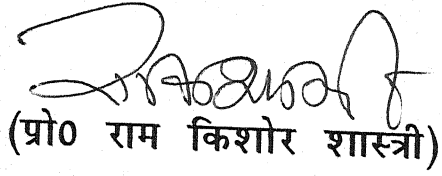 (प्रो0 राम किशोर शास्त्री)